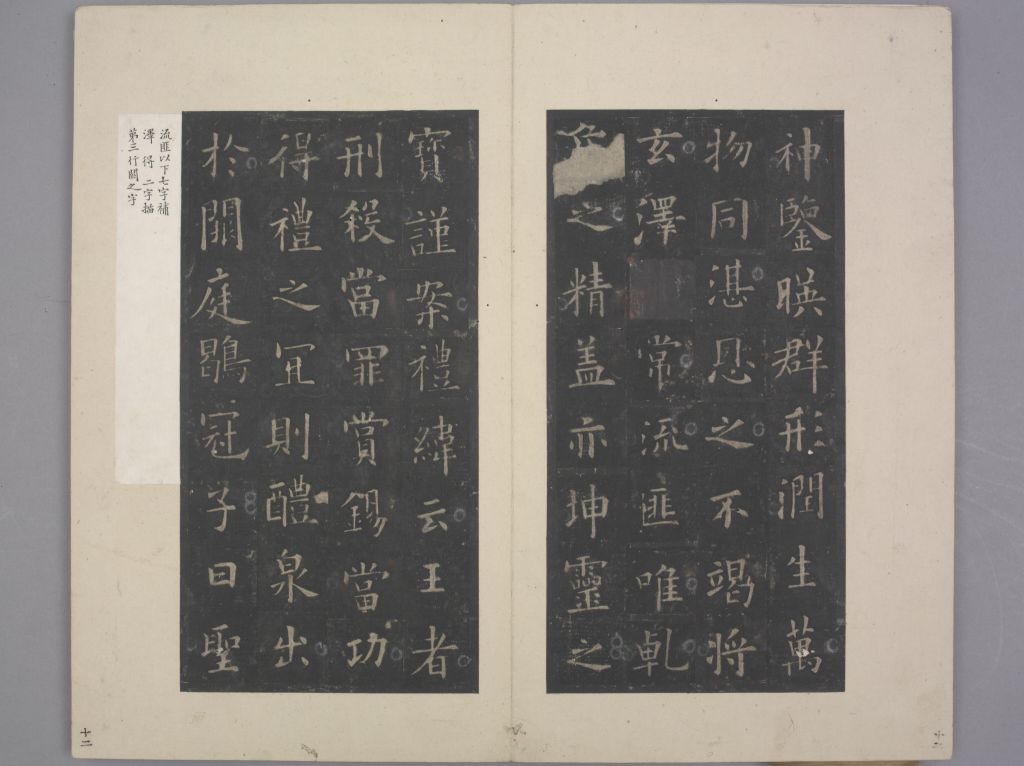 神鑒暎群形潤生萬
物同湛恩之不竭將
玄澤常流匪唯乹
之精盖亦坤靈之
寶謹案禮緯云王者
刑殺當罪賞錫當功
得禮之冝則醴泉出
於闕庭鶡冠子曰聖
流匪以下七字補
澤得二字描
第三行闕之字
十二